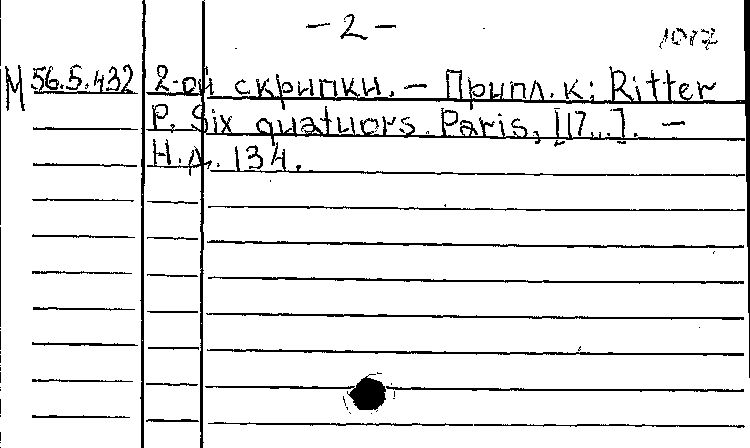 - 2 - 1017
М 56.5.432 2-ой скрипки. - Припл. к: Ritter
P. Six quatuors. Paris, [17...]. -
Н.д. 134.